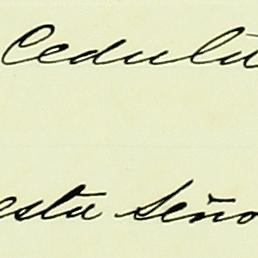 Cedulit
esta Seño